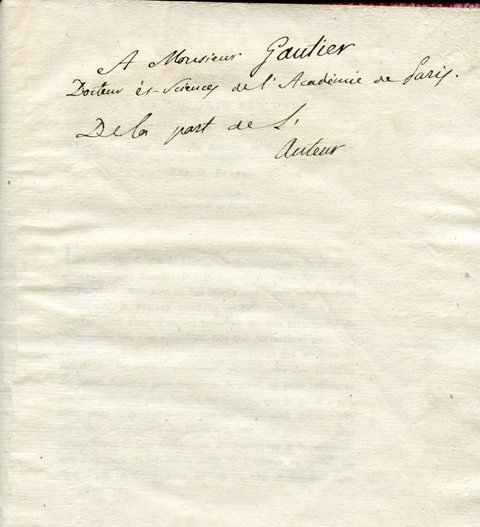 A Monsieur Gautier
Docteur ès-Sciences de l'Académie de Paris.
De la part de L'
Auteur